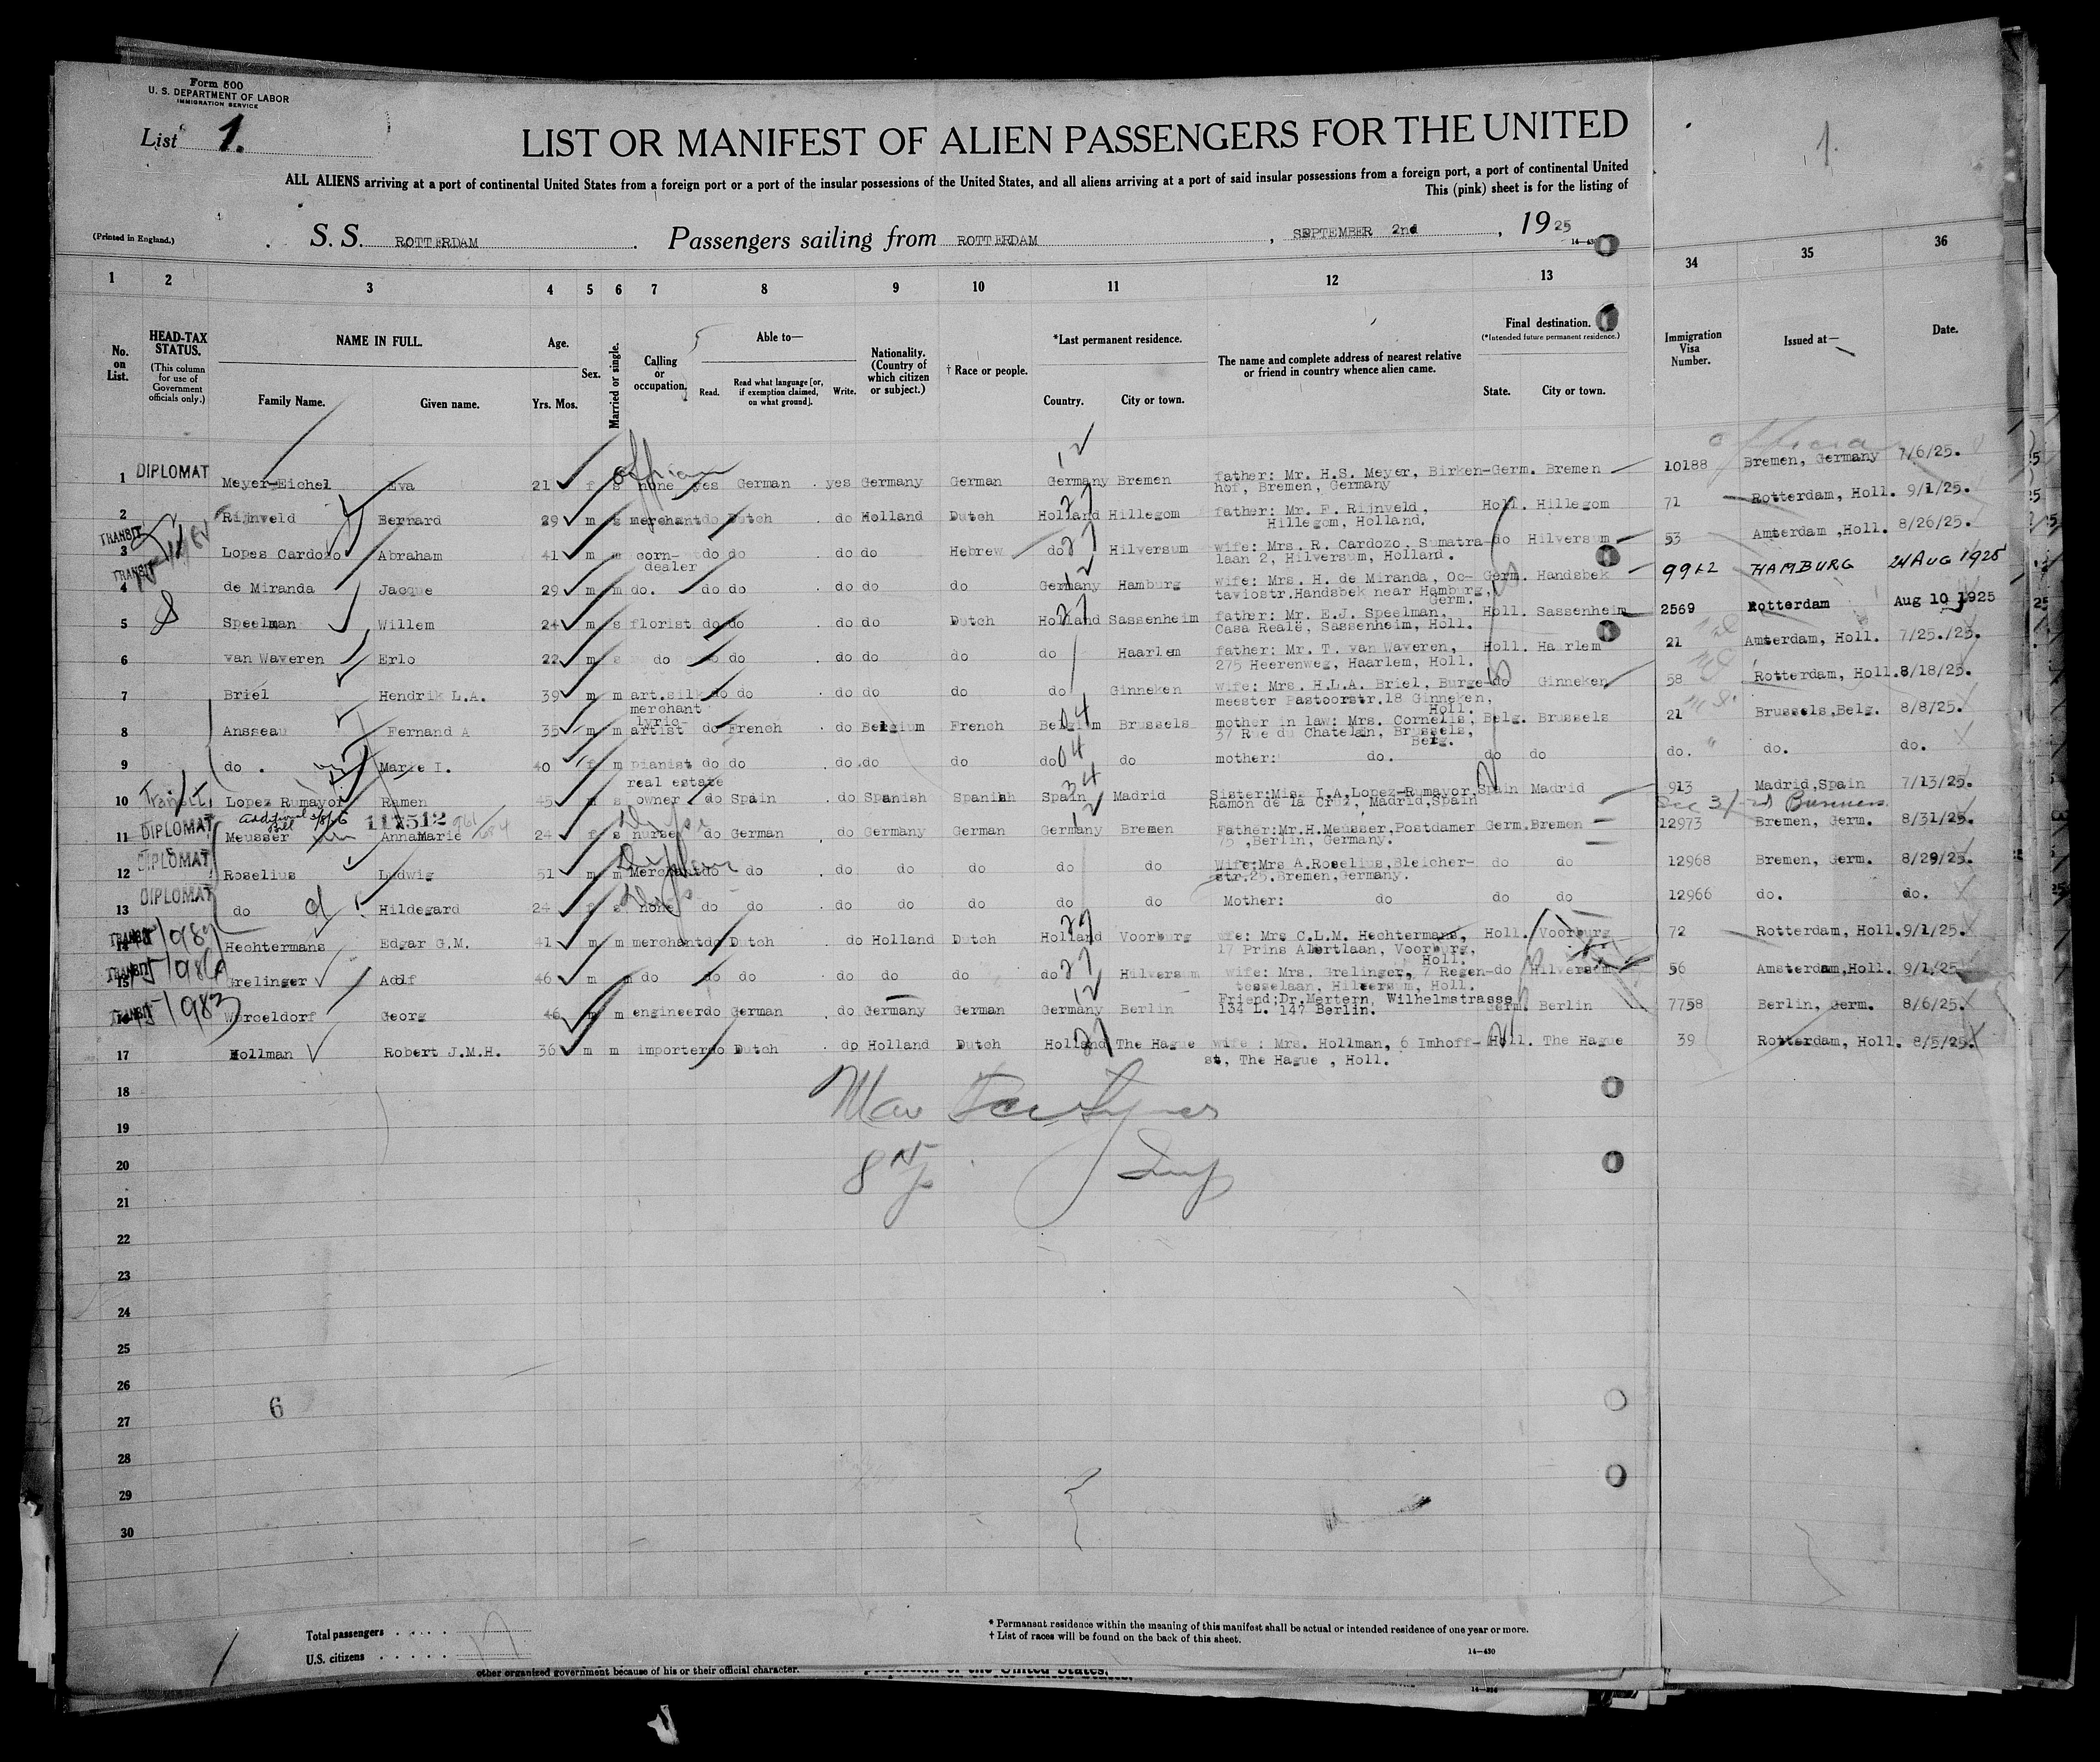 Form 500
U. S. DEPARTMENT OF LABOR
IMMIGRATION SERVICE
List 1.
1.
LIST OR MANIFEST OF ALIEN PASSENGERS FOR THE UNITED
ALL ALIENS arriving at a port of continental United States from a foreign port or a port of the insular possessions of the United States, and all aliens arriving at a port of said insular possessions from a foreign port, a port of continental United
This (pink) sheet is for the listing of
(Printed in England.)
S. S. ROTTERDAM Passengers sailing from ROTTERDAM , SEPTEMBER 2nd , 1925
1 2 3 4 5 6 7 8 9 10 11 12 13 34 35 36
No. on List.
HEAD-TAX STATUS.
(This column for use of Government officials only.)
NAME IN FULL.
Family Name. Given name.
Age.
Yrs. Mos.
Sex.
Married or single.
Calling or occupation.
Able to—
Read. Read what language [or, if exemption claimed, on what ground]. Write.
Nationality. (Country of which citizen or subject.)
† Race or people.
*Last permanent residence.
Country. City or town.
The name and complete address of nearest relative or friend in country whence alien came.
Final destination.
(*Intended future permanent residence.)
State. City or town.
Immigration Visa Number.
Issued at—
Date.
1 DIPLOMAT Meyer-Eichel Eva 21 f s none yes German yes Germany German Germany Bremen father: Mr. H.S. Meyer, Birken- Germ. Bremen 10188 Bremen, Germany 7/6/25.
hof, Bremen, Germany
2 Rijnveld Bernard 29 m s merchant do Dutch do Holland Dutch Holland Hillegom father: Mr. F. Rijnveld, Holl. Hillegom 71 Rotterdam, Holl. 9/1/25.
Hillegom, Holland.
TRANSIT
3 Lopes Cardozo Abraham 41 m m corn- do do do do Hebrew do Hilversum wife: Mrs. R. Cardozo, Sumatra- do Hilversum 53 Amsterdam ,Holl. 8/26/25.
dealer laan 2, Hilversum, Holland.
TRANSIT
4 de Miranda Jacque 29 m m do. do do do do do Germany Hamburg wife: Mrs. H. de Miranda, Oc- Germ. Handsbek 9922 HAMBURG 24 AUG 1925
taviostr.Handsbek near Hamburg, Germ.
5 Speelman Willem 24 m s florist do do do do Dutch Holland Sassenheim father: Mr. E.J. Speelman, Holl. Sassenheim 2569 Rotterdam Aug 10 1925
Casa Reale, Sassenheim, Holl.
6 van Waveren Erlo 22 m s do do do do do do Haarlem father: Mr. T. van Waveren, Holl. Haarlem 21 Amsterdam, Holl. 7/25./25.
275 Heerenweg, Haarlem, Holl.
7 Briel Hendrik L.A. 39 m m art.silk do do do do do do Ginneken wife: Mrs. H.L.A. Briel, Burge- do Ginneken 58 Rotterdam, Holl. 8/18/25.
merchant meester Pastoorstr.18 Ginneken, Holl.
8 Ansseau Fernand A 35 m m lyric- artist do French do Belgium French Belgium Brussels mother in law: Mrs. Cornelis, Belg. Brussels 21 Brussels,Belg. 8/8/25.
37 Rue du Chatelain, Brussels, Belg.
9 do . Marie I. 40 f m pianist do do do do do do do mother: do. do do do. do. do.
10 Transit Lopez Rumayor Ramen 45 m s real estate owner do Spain do Spanish Spanish Spain Madrid Sister:Mis. I.A.Lopez-Rumayor, Spain Madrid 913 Madrid,Spain 7/13/25.
Ramon de la Cruz, Madrid,Spain
117512
11 DIPLOMAT Meusser AnnaMarie 24 f s nurse do German do Germany German Germany Bremen Father:Mr.H.Meusser,Postdamer Germ. Bremen 12973 Bremen, Germ. 8/31/25.
75 ,Berlin, Germany.
12 DIPLOMAT Roselius Ludwig 51 m m Merchant do do do do do do do Wife:Mrs A.Roselius,Bleicher- do do 12968 Bremen, Germ. 8/29/25.
str.25.Bremen,Germany.
13 DIPLOMAT do Hildegard 24 f s none do do do do do do do Mother: do do do 12966 do. do.
14 TRANSIT Hechtermans Edgar G.M. 41 m m merchant do Dutch do Holland Dutch Holland Voorburg wife: Mrs C.L.M. Hechtermans, Holl. Voorburg 72 Rotterdam, Holl. 9/1/25.
17 Prins Albertlaan, Voorburg, Holl.
15 TRANSIT Grelinger Adolf 46 m m do do do do do do do Hilversum wife: Mrs. Grelinger, 7 Regen- do Hilversum 56 Amsterdam,Holl. 9/1/25
tesselaan, Hilversum, Holl.
16 TRANSIT Worceldorf Georg 46 m m engineer do German do Germany German Germany Berlin Friend:Dr.Mertern, Wilhelmstrasse Germ. Berlin 7758 Berlin, Germ. 8/6/25.
134 L. 147 Berlin.
17 Hollman Robert J.M.H. 36 m m importer do Dutch do Holland Dutch Holland The Hague wife : Mrs. Hollman, 6 Imhoff- Holl. The Hague 39 Rotterdam, Holl. 8/5/25.
st, The Hague , Holl.
18
19
20
21
22
23
24
25
26
6
27
28
29
30
Total passengers . . . . . 17
U.S. citizens . . . . . .
* Permanent residence within the meaning of this manifest shall be actual or intended residence of one year or more.
† List of races will be found on the back of this sheet.
14—430
other organized government because of his or their official character.